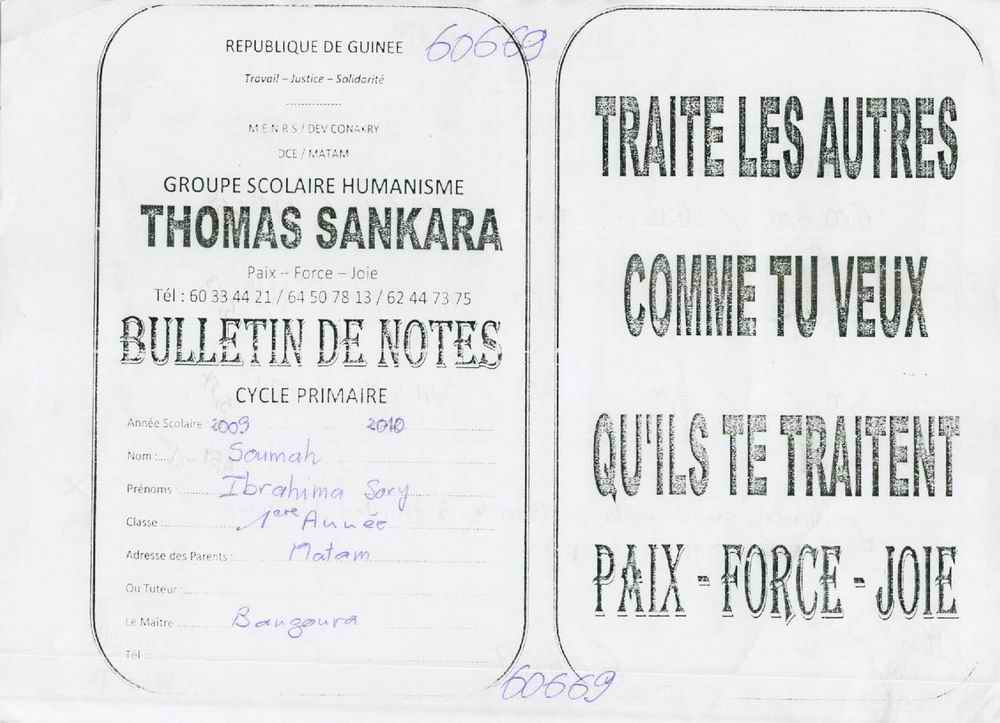 REPUBLIQUE DE GUINEE 60669
Travail – Justice – Solidarité
M.E.N.R.S / DEV CONAKRY
DCE / MATAM
GROUPE SCOLAIRE HUMANISME
THOMAS SANKARA
Paix – Force – Joie
Tél : 60 33 44 21 / 64 50 78 13 / 62 44 73 75
BULLETIN DE NOTES
CYCLE PRIMAIRE
Année Scolaire 2009 2010
Nom : Soumah
Prénoms : Ibrahima Sory
Classe 1ère Année
Adresse des Parents : Matam
Ou Tuteur
Le Maitre Bangoura
Tél
60669
TRAITE LES AUTRES
COMME TU VEUX
QU'ILS TE TRAITENT
PAIX - FORCE - JOIE